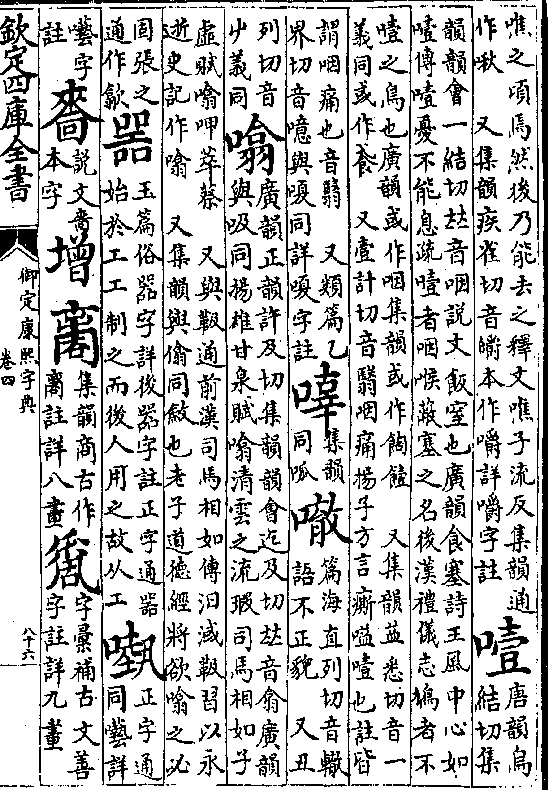 噍之頃焉然後乃能去之釋文噍子流反集韻通
作啾 又集韻疾雀切音嚼本作嚼詳嚼字註
噎
唐韻烏
結切集
韻韻會一結切𠀤音咽說文飯窒也廣韻食塞詩王風中心如
噎傳噎憂不能息疏噎者咽喉蔽塞之名後漢禮儀志鳩者不
噎之鳥也廣韻或作咽集韻或作餉饐 又集韻益悉切音一
義同或作 又壹計切音翳咽痛揚子方言嘶嗌噎也註皆
謂咽痛也音翳 又類篇乙
界切音噫與嗄同詳嗄字註
集韻
同呱
篇海直列切音轍
語不正貌 又丑
列切音
屮義同
噏
廣韻正韻許及切集韻韻會迄及切𠀤音翕廣韻
與吸同揚雄甘泉賦噏清雲之流瑕司馬相如子
虛賦噏呷萃蔡 又與靸通前漢司馬相如傳汩淢靸習以永
逝史記作噏 又集韻與㒆同斂也老子道德經將欲噏之必
固張之
通作歙
噐
玉篇俗器字詳後器字註正字通器
始於工工制之而後人用之故从工
正字通
同囈詳
囈字
註
說文嗇
本字
增
集韻商古作
註詳八畫
字彙補古文善
字註詳九畫
欽定四庫全書
御定康熙字典
卷四
八十六